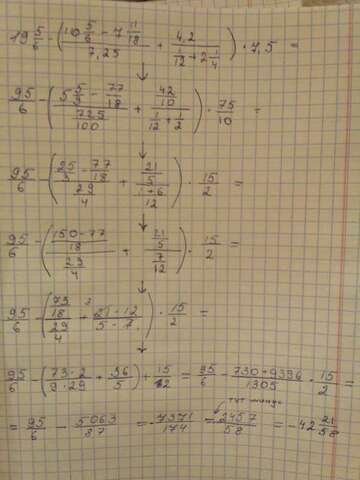 19 5/6 - ( (10 5/6 - 7 11/18) / 7,25 + 4,2 / (1/12 + 2 1/4) ) · 7,5 =
95/6 - ( (5 5/3 - 77/18) / (725/100) + (42/10) / (1/12 + 1/2) ) · 75/10 =
95/6 - ( (25/3 - 77/18) / (29/4) + (21/5) / ((1+6)/12) ) · 15/2 =
95/6 - ( ((150-77)/18) / (29/4) + (21/5) / (7/12) ) · 15/2 =
95/6 - ( (73/18) / (29/4) + (21·12)/(5·7) ) · 15/2 =
95/6 - ( (73·2)/(9·29) + 36/5 ) + 15/2 = 95/6 - (730+9396)/1305 · 15/2 =
= 95/6 - 5063/87 = -7371/174 = -2457/58 = -42 21/58
тут минус